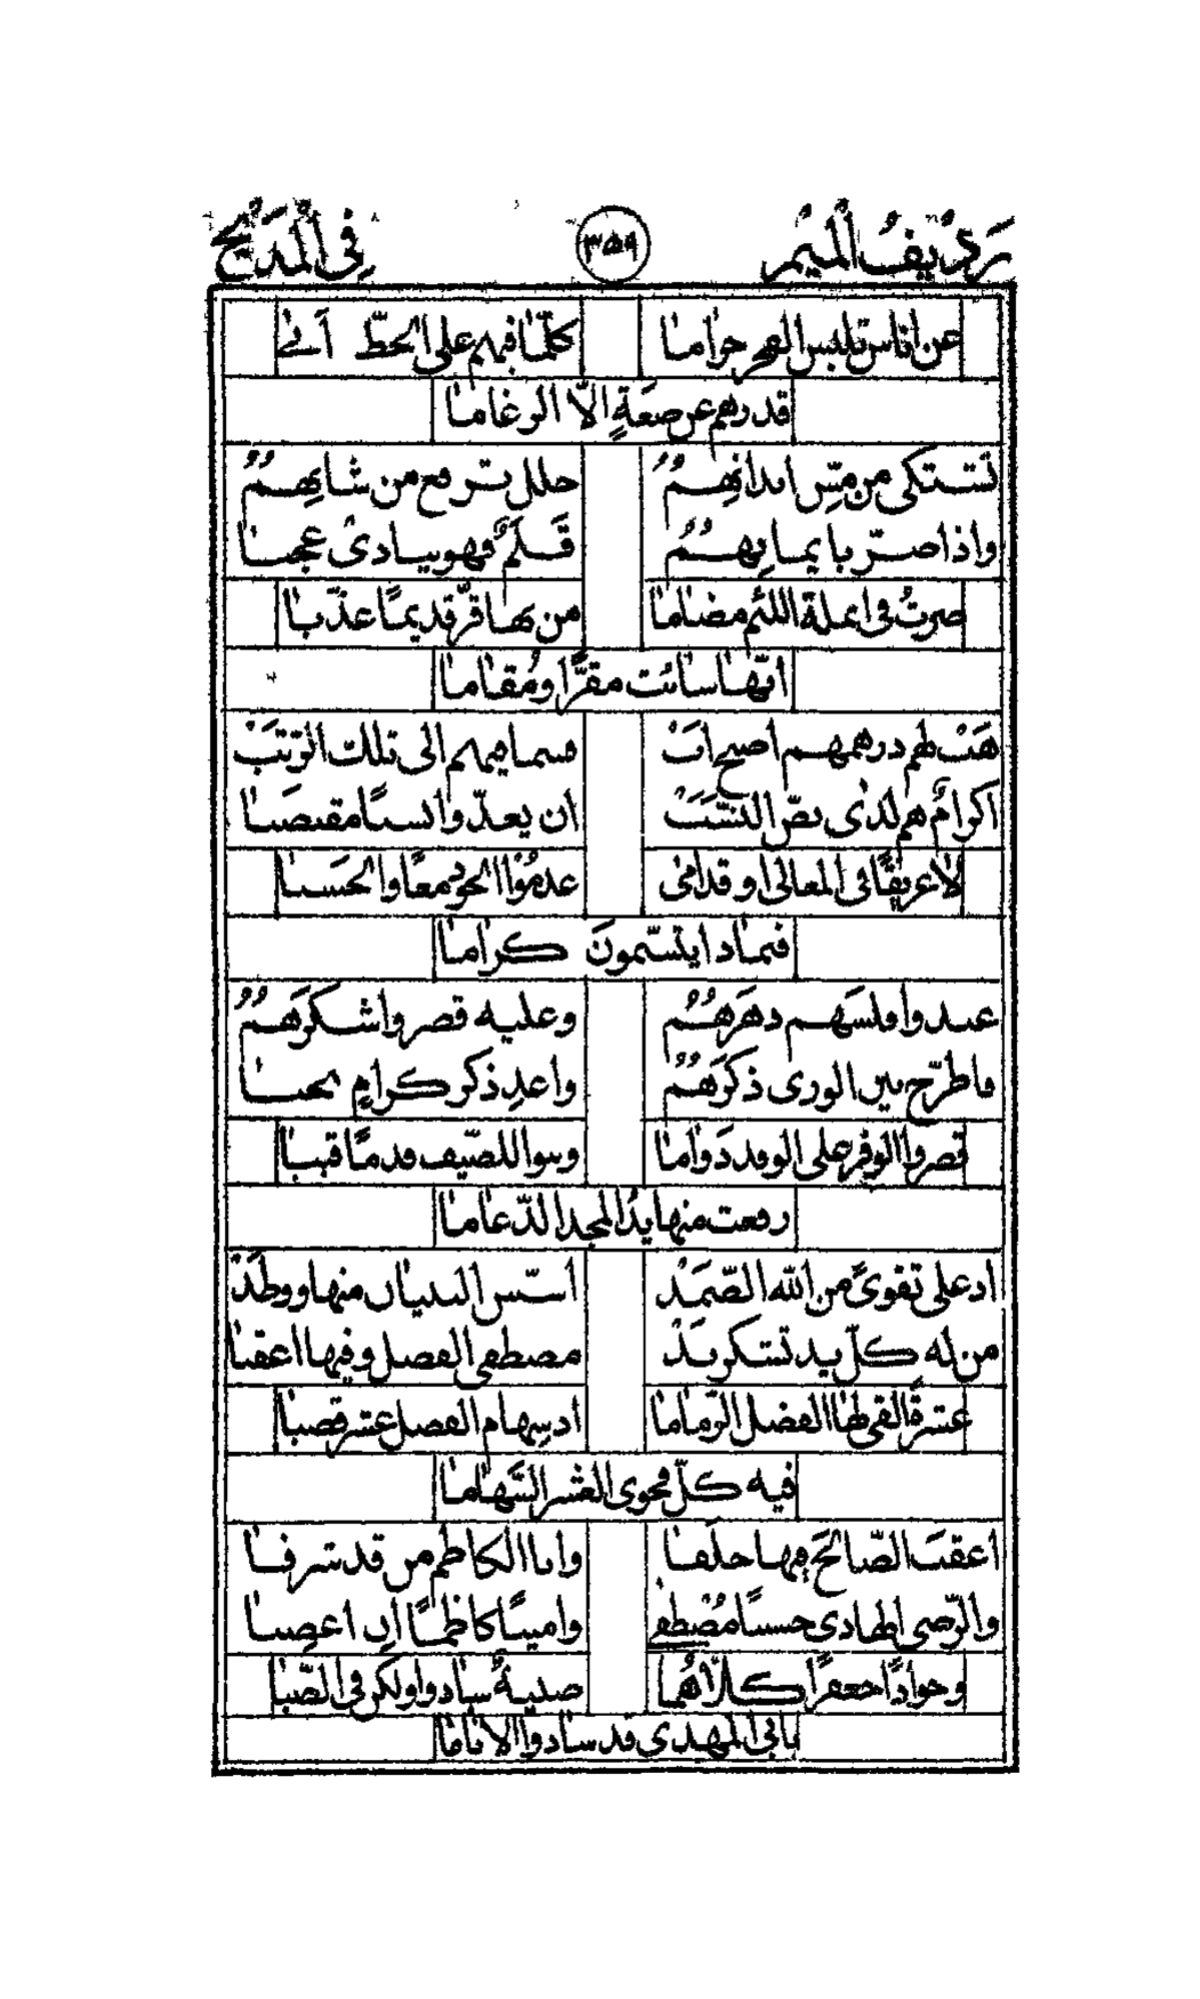 رديف الميم ٣٥٩ في المديح
عن اناس تلبس الفخر حراما كلّما فيهم على الحظّ أبى
قدرهم عن صعةٍ الّا الرغاما
تشتكي من مسّ ابدانهمُ حلل ترفع من شانهمُ
واذا صرّ بايمانهمُ قلمٌ فهو ينادى عجبا
صرتُ في انملة اللئم مضاما من بها قرّ قديمًا عذّبا
انّها سائت مقرًّا ومُقاما
هَبْ لهم درهمهم اصبح ابْ فسما فيهم الى تلك الرتبْ
اكرامٌ هم لدى نصّ النسَبْ ان يعدّوا نسبًا مقتضبا
لا عريقًا في المعالى او قدامى عدمُوا الجود معًا والحسبا
فبماذا يتسمّونَ كراما
عبدوا فلسهم دهرَهُمُ وعليه قصروا شكرَهُمُ
فاطّرح بين الورى ذكرَهُمُ واعدِ ذكر كرامٍ نجبا
قصروا الوفر على الوفد دَواما وبنوا للضّيف قدمًا قببا
رفعت منها يدُ المجد الدّعاما
اد على تقوىً من الله الصّمَدْ اسّس البنيان منها ووطَدْ
من له كلّ يد تشكر يدْ مصطفى الفضل وفيها اعقبا
عشرة القى لها الفضل الزّماما اد سهام الفضل عشر قصبا
فيه كلّ محوى العشر السَّهاما
اعقبَ الصّالحَ فيها خلفا وابا الكاظم من قد شرفا
والرّضى الهادى حسنًا مُصْطفى وامينًا كاظمًا ان اغضبا
وجوادًا جعفرًا كلّاهُما صبيةٌ سادوا ولكن في الصّبا
بابي المهدي قد سادوا الاناما